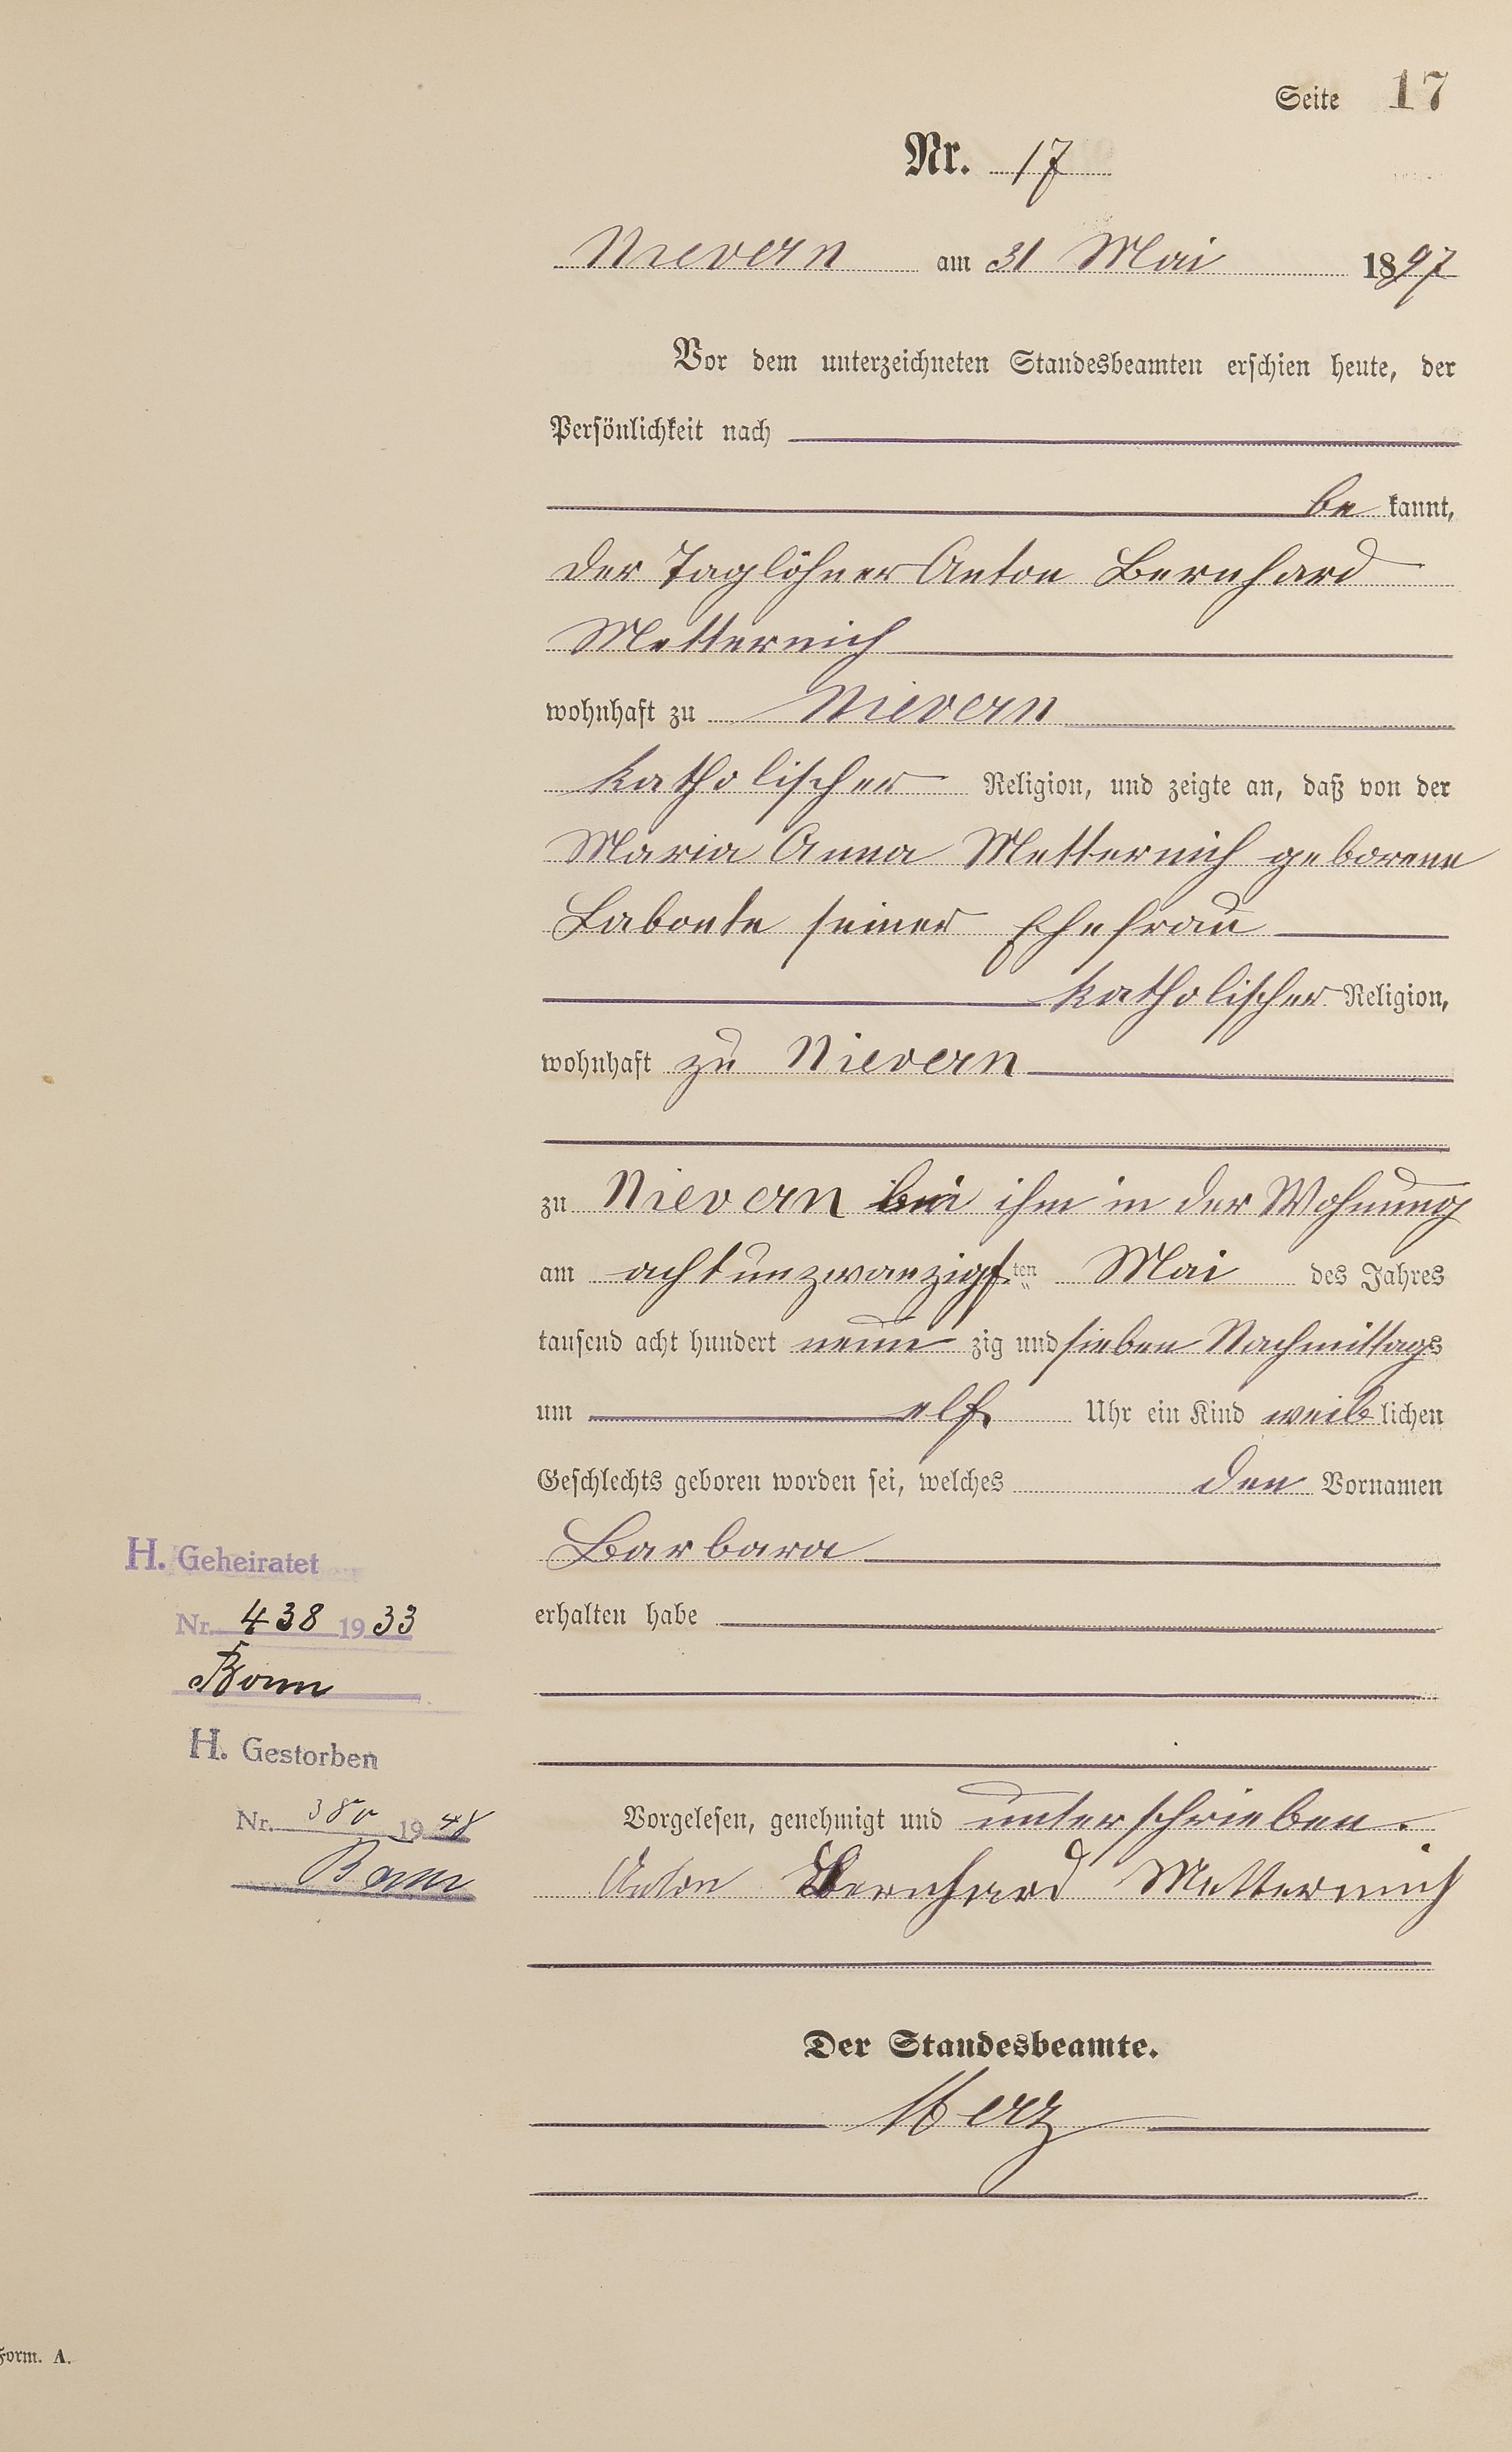 Seite 17
Nr. 17
Nievern am 31 Mai 1897
Vor dem unterzeichneten Standesbeamten erschien heute, der
Persönlichkeit nach
be kannt,
der Taglöhner Anton Bernhard
Metternich
wohnhaft zu Nievern
katholischer Religion, und zeigte an, daß von der
Maria Anna Metternich geborene
Labonte seiner Ehefrau
katholischer Religion,
wohnhaft zu Nievern
zu Nievern bei ihm in der Wohnung
am achtunzwanzigsten Mai des Jahres
tausend acht hundert neun zig und sieben Nachmittags
um elf Uhr ein Kind weiblichen
Geschlechts geboren worden sei, welches den Vornamen
Barbara
erhalten habe
H. Geheiratet
Nr. 438 1933
Bonn
H. Gestorben
Nr. 380 1948
Bonn
Vorgelesen, genehmigt und unterschrieben.
Anton Bernhard Metternich
Der Standesbeamte.
Herz
Form. A.